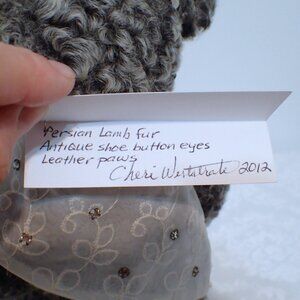 Persian Lamb fur
Antique shoe button eyes
Leather paws
Cheri Westrate 2012